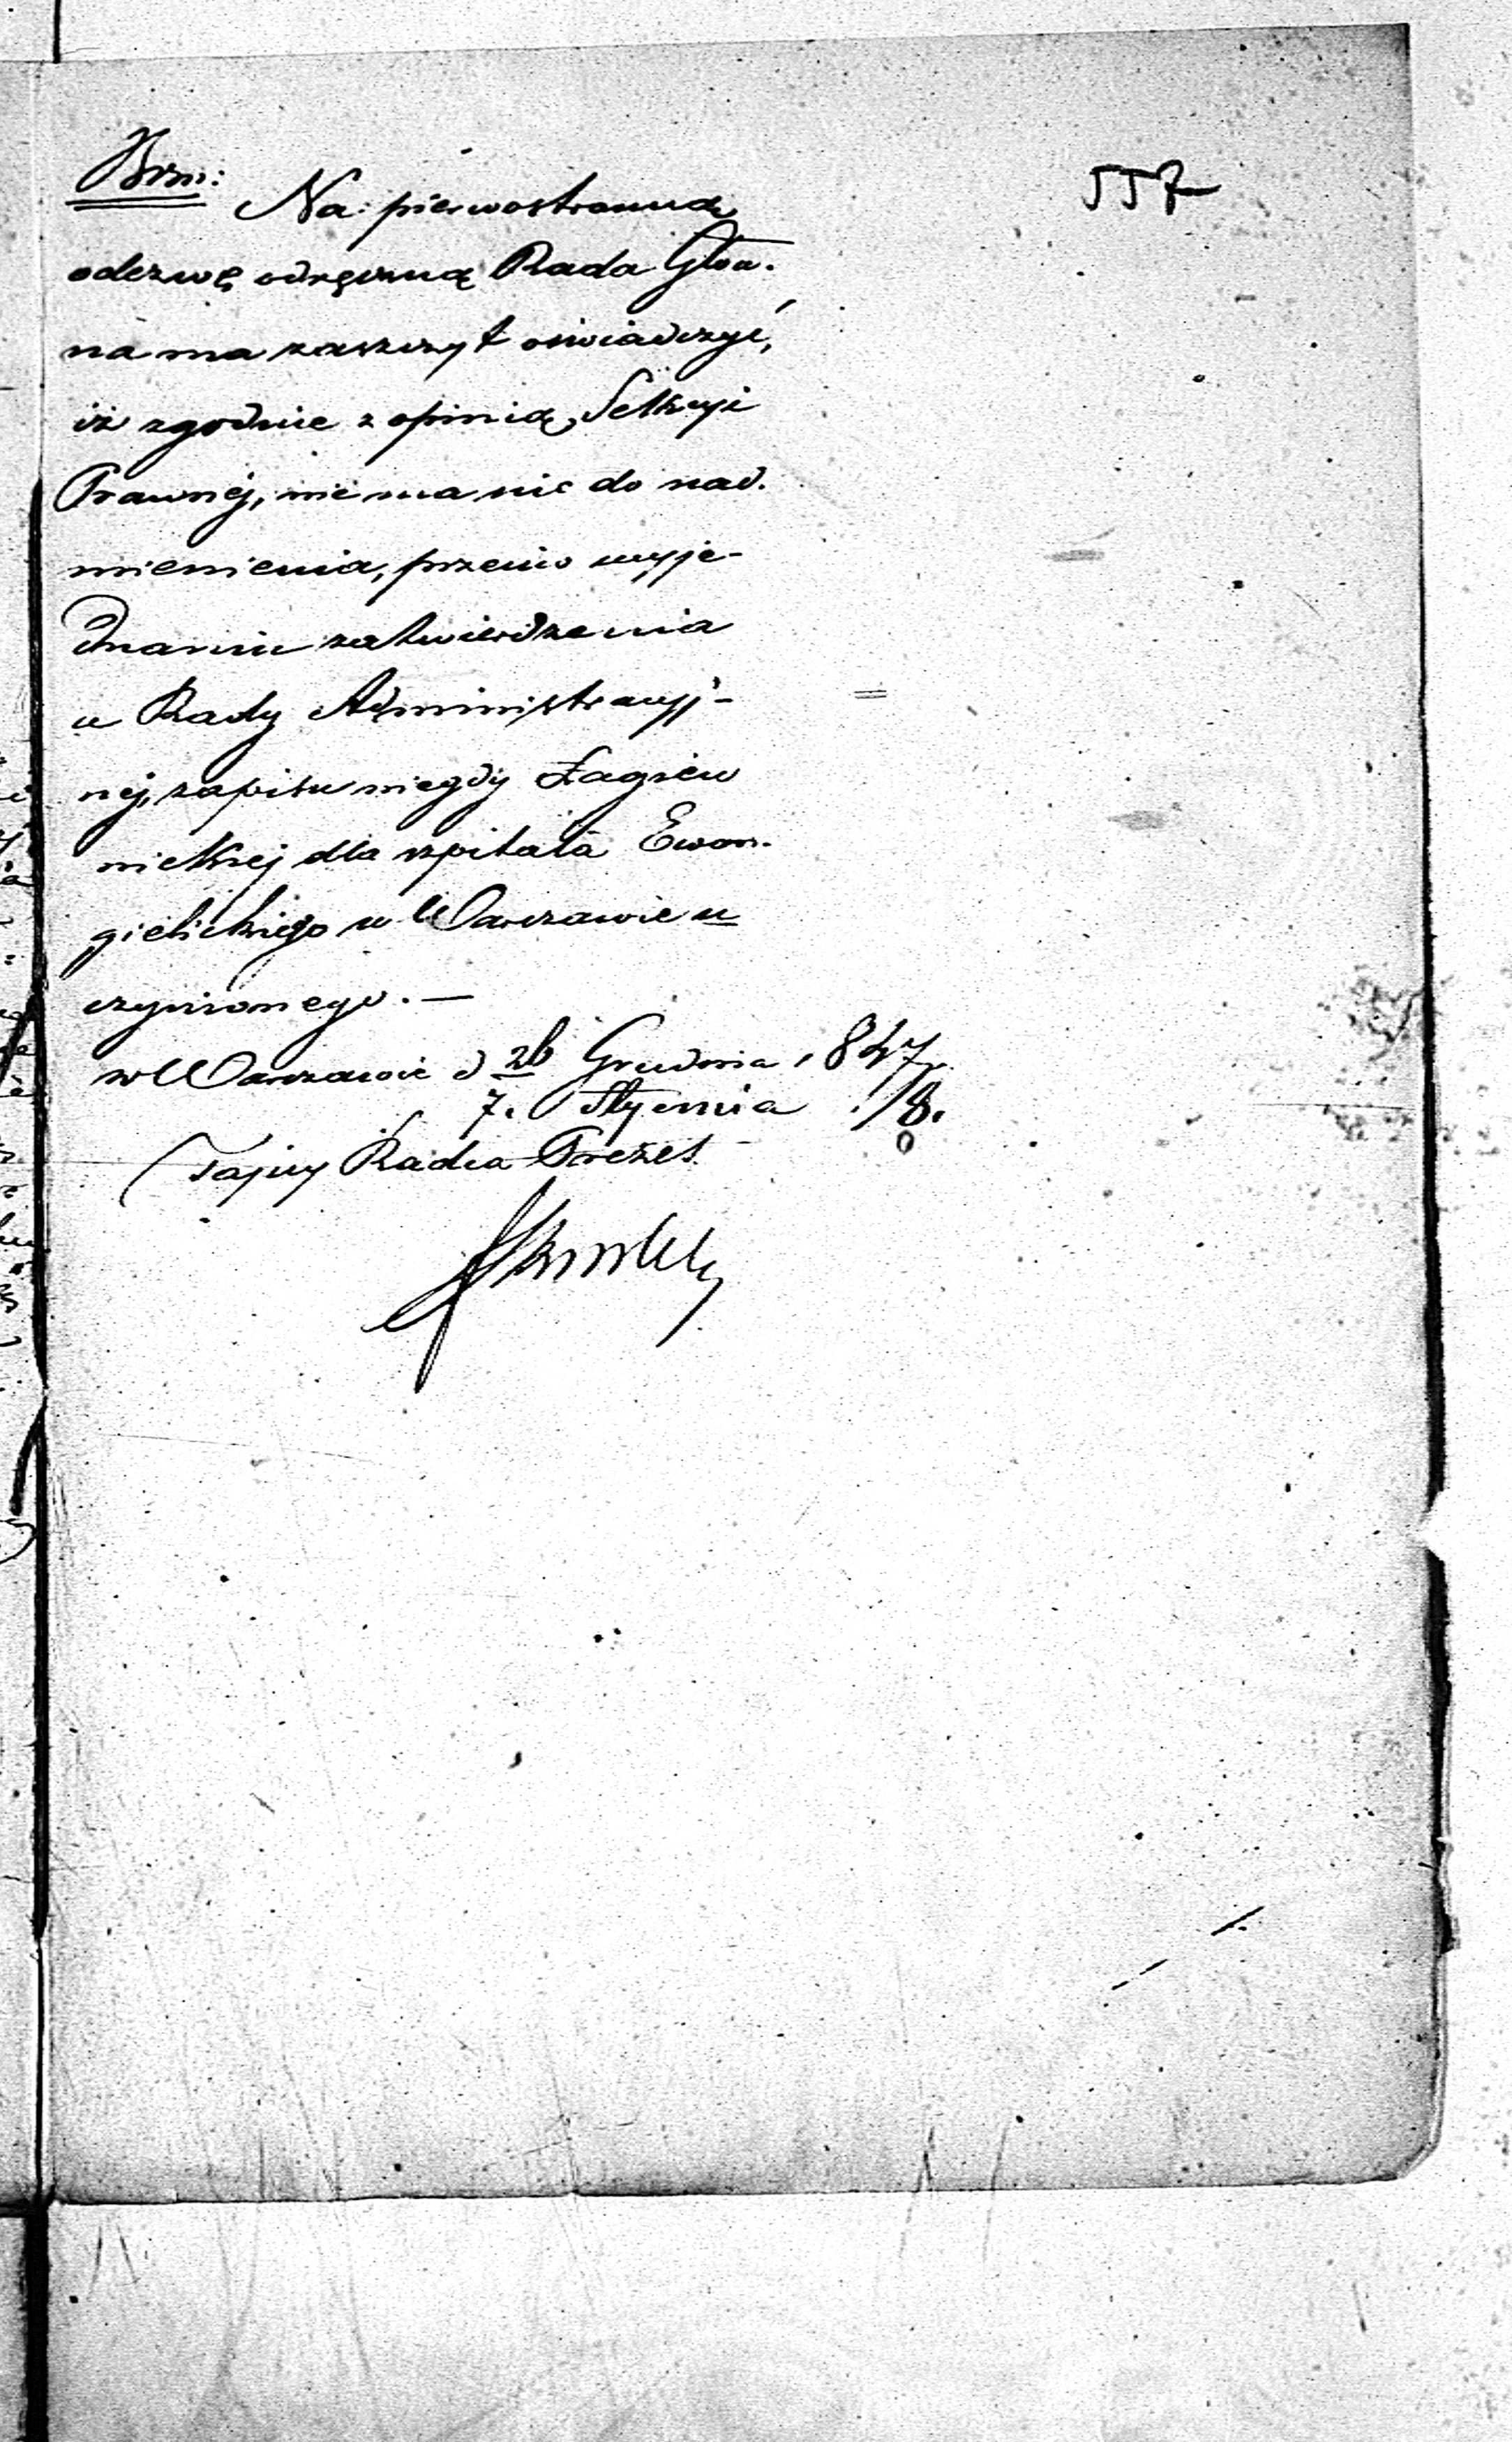 Brm:
557
Na pierwostronną
odezwę odręczną Rada Głów-
na ma zaszczyt oświadczyć,
iż zgodnie z opinią Sekcyi
Prawnéj, nie ma nic do nad-
mienienia, przeciw wyje-
dnaniu zatwierdzenia
u Rady Administracyj-
néj, zapisu niegdy Łagiew
nickiej dla szpitala Ewan-
gielickiego w Warszawie u
czynionego. —
w Warszawie d 26 Grudnia 1847
7. Stycznia /8.
Tajny Radca Prezes